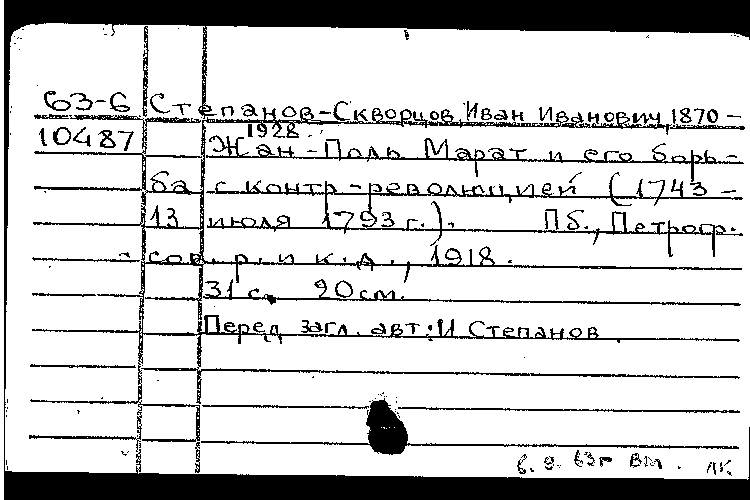 63-6 Степанов-Скворцов, Иван Иванович, 1870-
10487 1928.
Жан-Поль Марат и его борь-
ба с контр-революцией (1743-
13 июля 1793 г.). Пб., Петрогр.
сов. р. и к.д., 1918.
31 с. 20 см.
Перед загл. авт.: И Степанов.
6. 9. 63г ВМ. АК